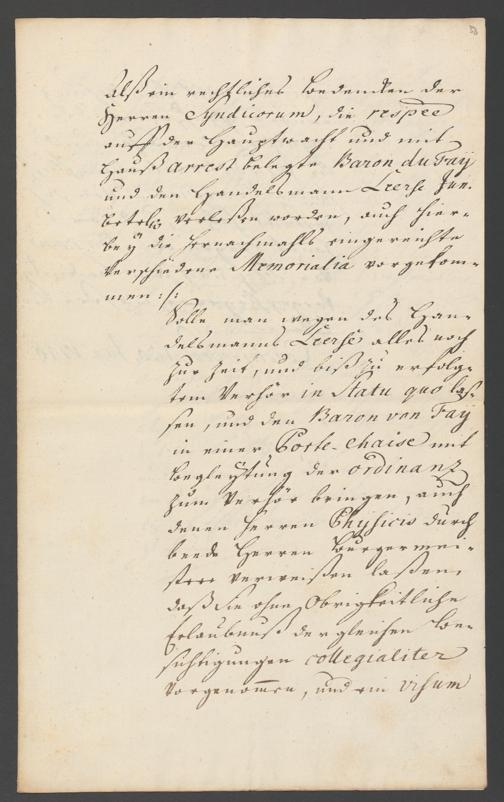 58
Alß ein rechtliches Bedencken der
Herren Syndicorum, die respēe
auff der Hauptwacht und mit
Hauß arrest belegte Baron du Fay
und den Handelsmann Leerse Jun.
betrˢ verleßen worden, auch hier-
bey die hernachmahls eingereichte
verschiedene Memorialia vorgekom-
men :/:
Solle man wegen des Han-
delsmanns Leerse alles noch
zur Zeit, und biß zu erfolg-
tem Verhör in Statu quo laß-
sen, und den Baron von Fay
in einer Porte-chaise mit
Begleytung der ordinanz
zum Verhör bringen, auch
denen Herren Physicis durch
beede Herren Burgermei-
stere verweißen laßen,
daß Sie ohne Obrigkeitliche
Erlaubnuß dergleichen Be-
sichtigungen collegialiter
vorgenom̄en, und ein visum